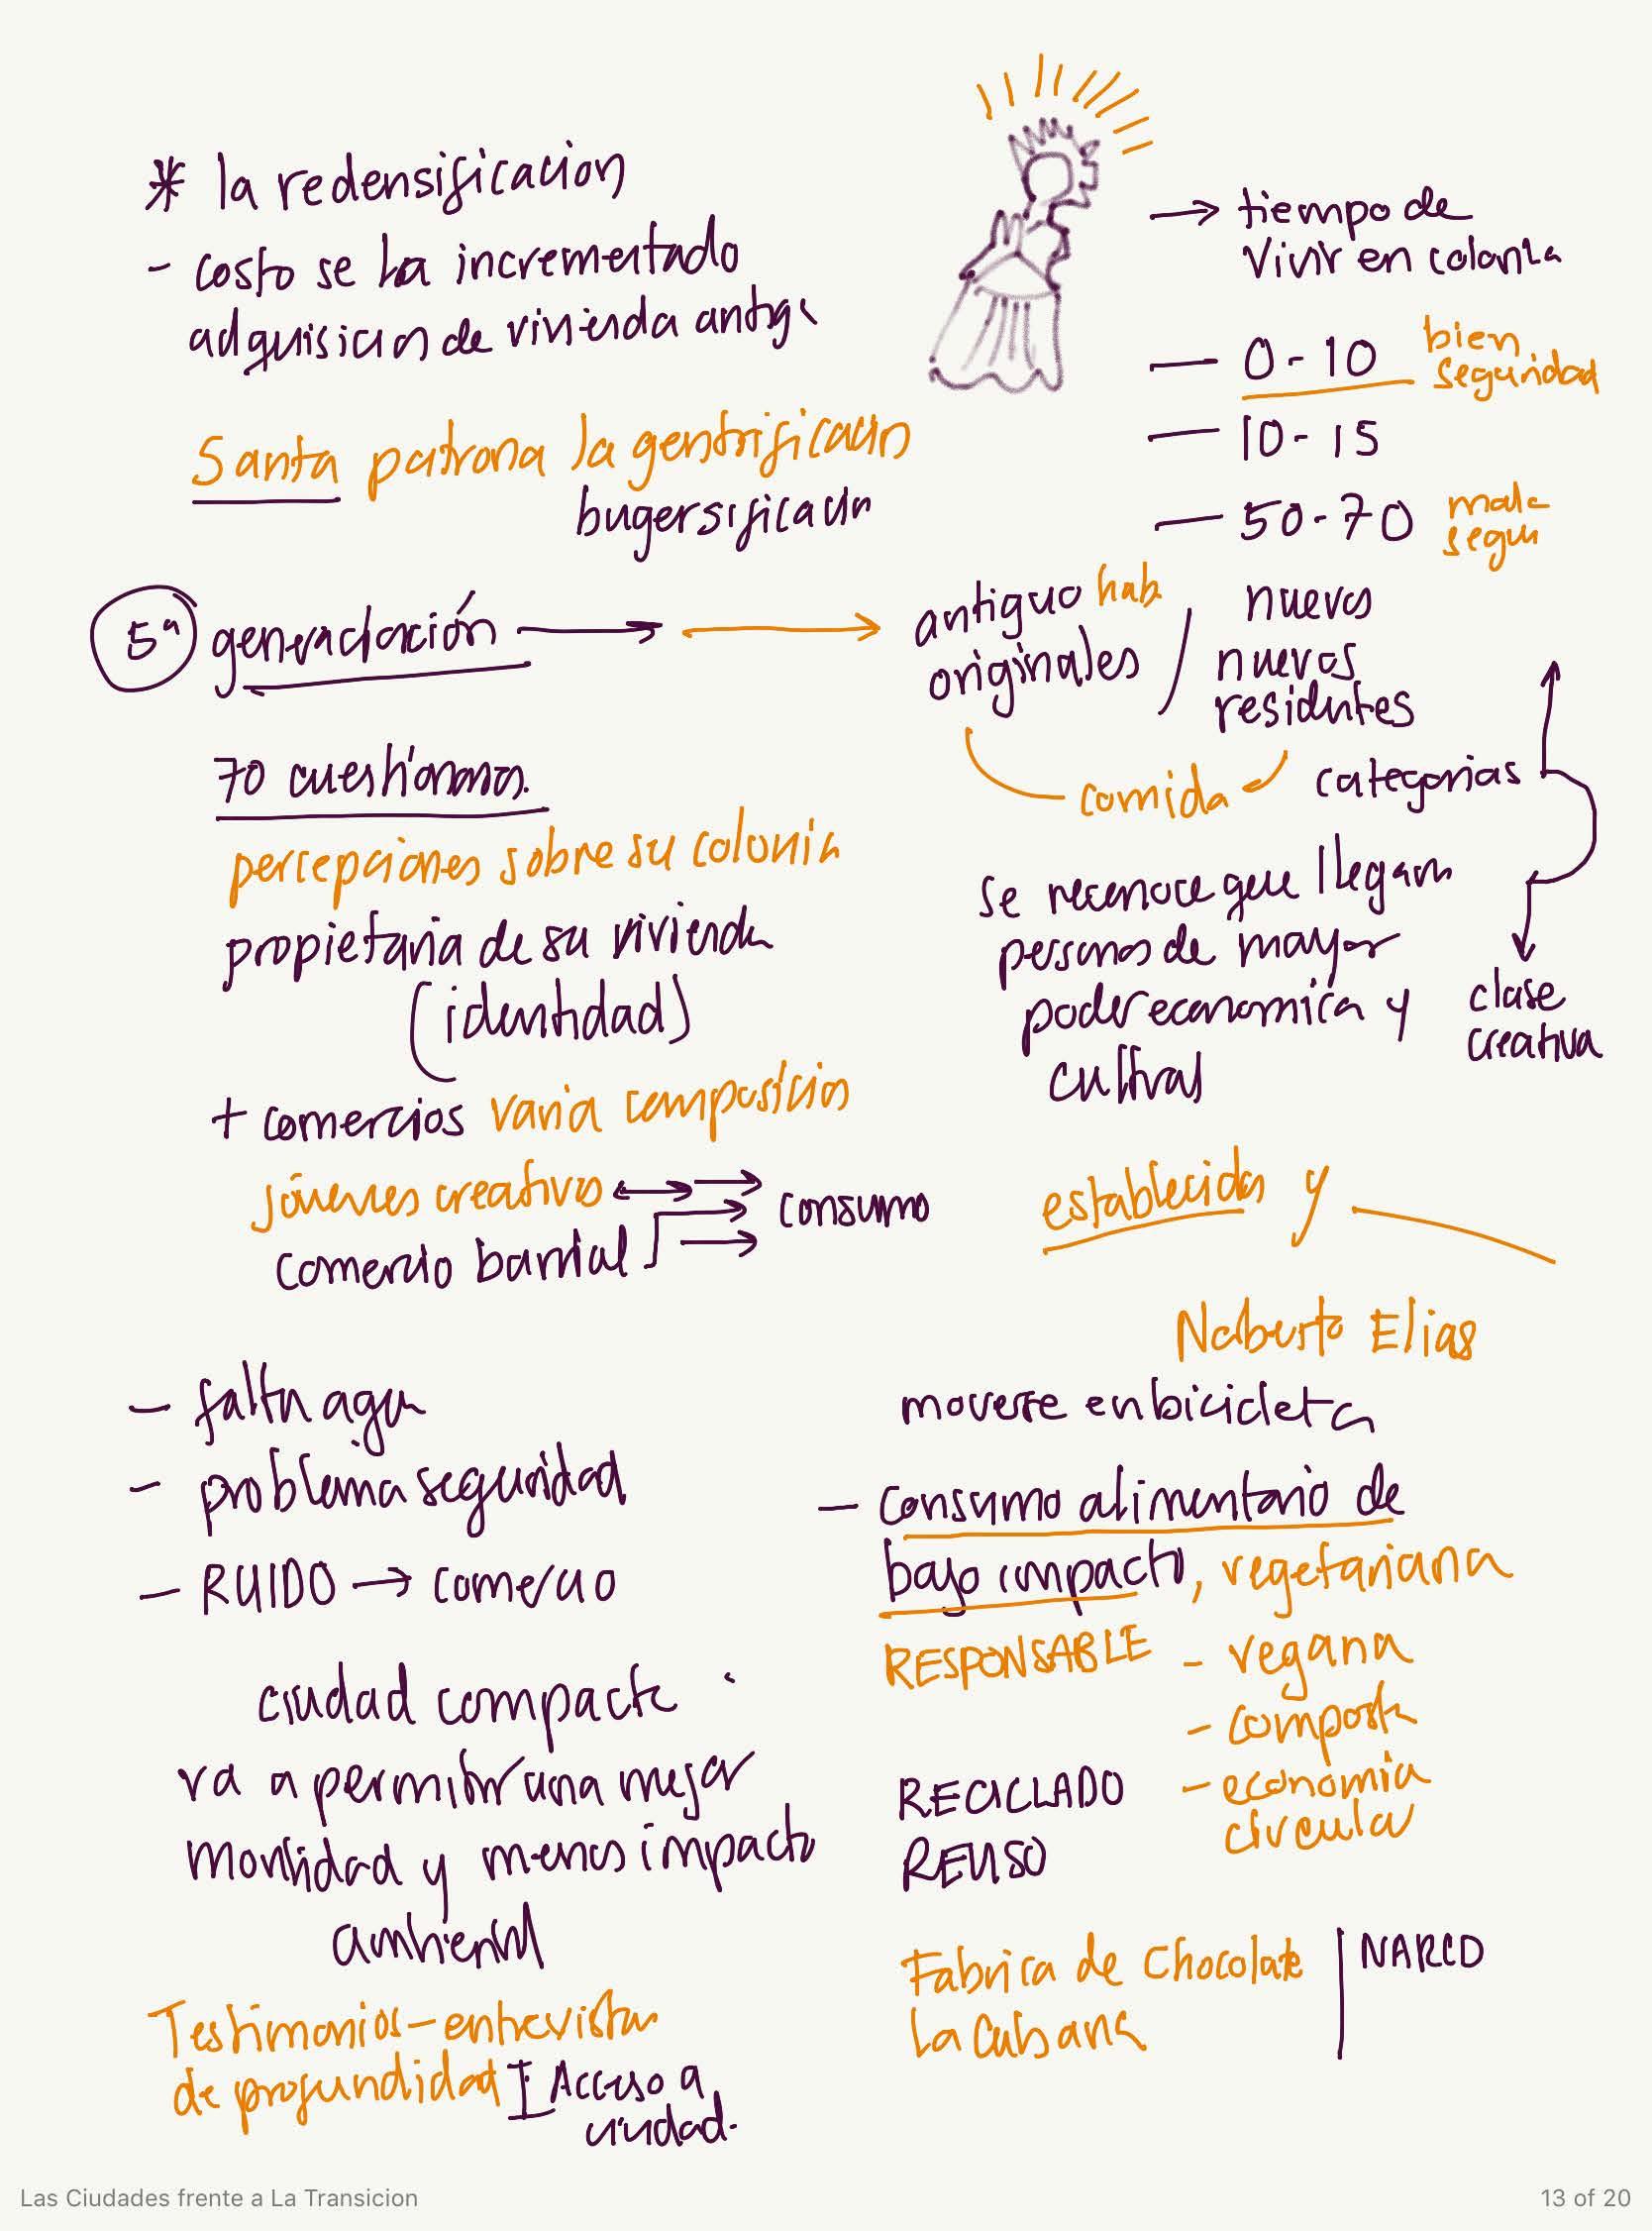 * la redensificacion
- costo se ha incrementado
adquisicion de vivienda antig
Santa patrona la gentrificacion
bugersificacion
→ tiempo de
vivir en colonia
— 0-10 bien
seguridad
— 10-15
— 50-70 mala
segu
5ª generación →
antiguo hab
originales / nuevos
nuevos
residentes
comida
categorias
70 cuestionarios.
percepciones sobre su colonia
propietaria de su vivienda
(identidad)
+ comercios varia composicion
jóvenes creativos
comercio barrial
consumo
se reconoce que llegan
personas de mayor
poder economica y
cultral
clase
creativa
establecidos y
Noberto Elias
- falta agua
- problema seguridad
- RUIDO → comercio
ciudad compacta
va a permitir una mejor
movilidad y menos impacto
ambiental
Testimonios - entrevistas
de profundidad
Acceso a
ciudad.
moverse en bicicleta
- consumo alimentario de
bajo impacto, vegetariana
RESPONSABLE - vegana
- composta
- economia
circular
RECICLADO
REUSO
Fabrica de Chocolate
La Cubana
NARCO
Las Ciudades frente a La Transicion
13 of 20